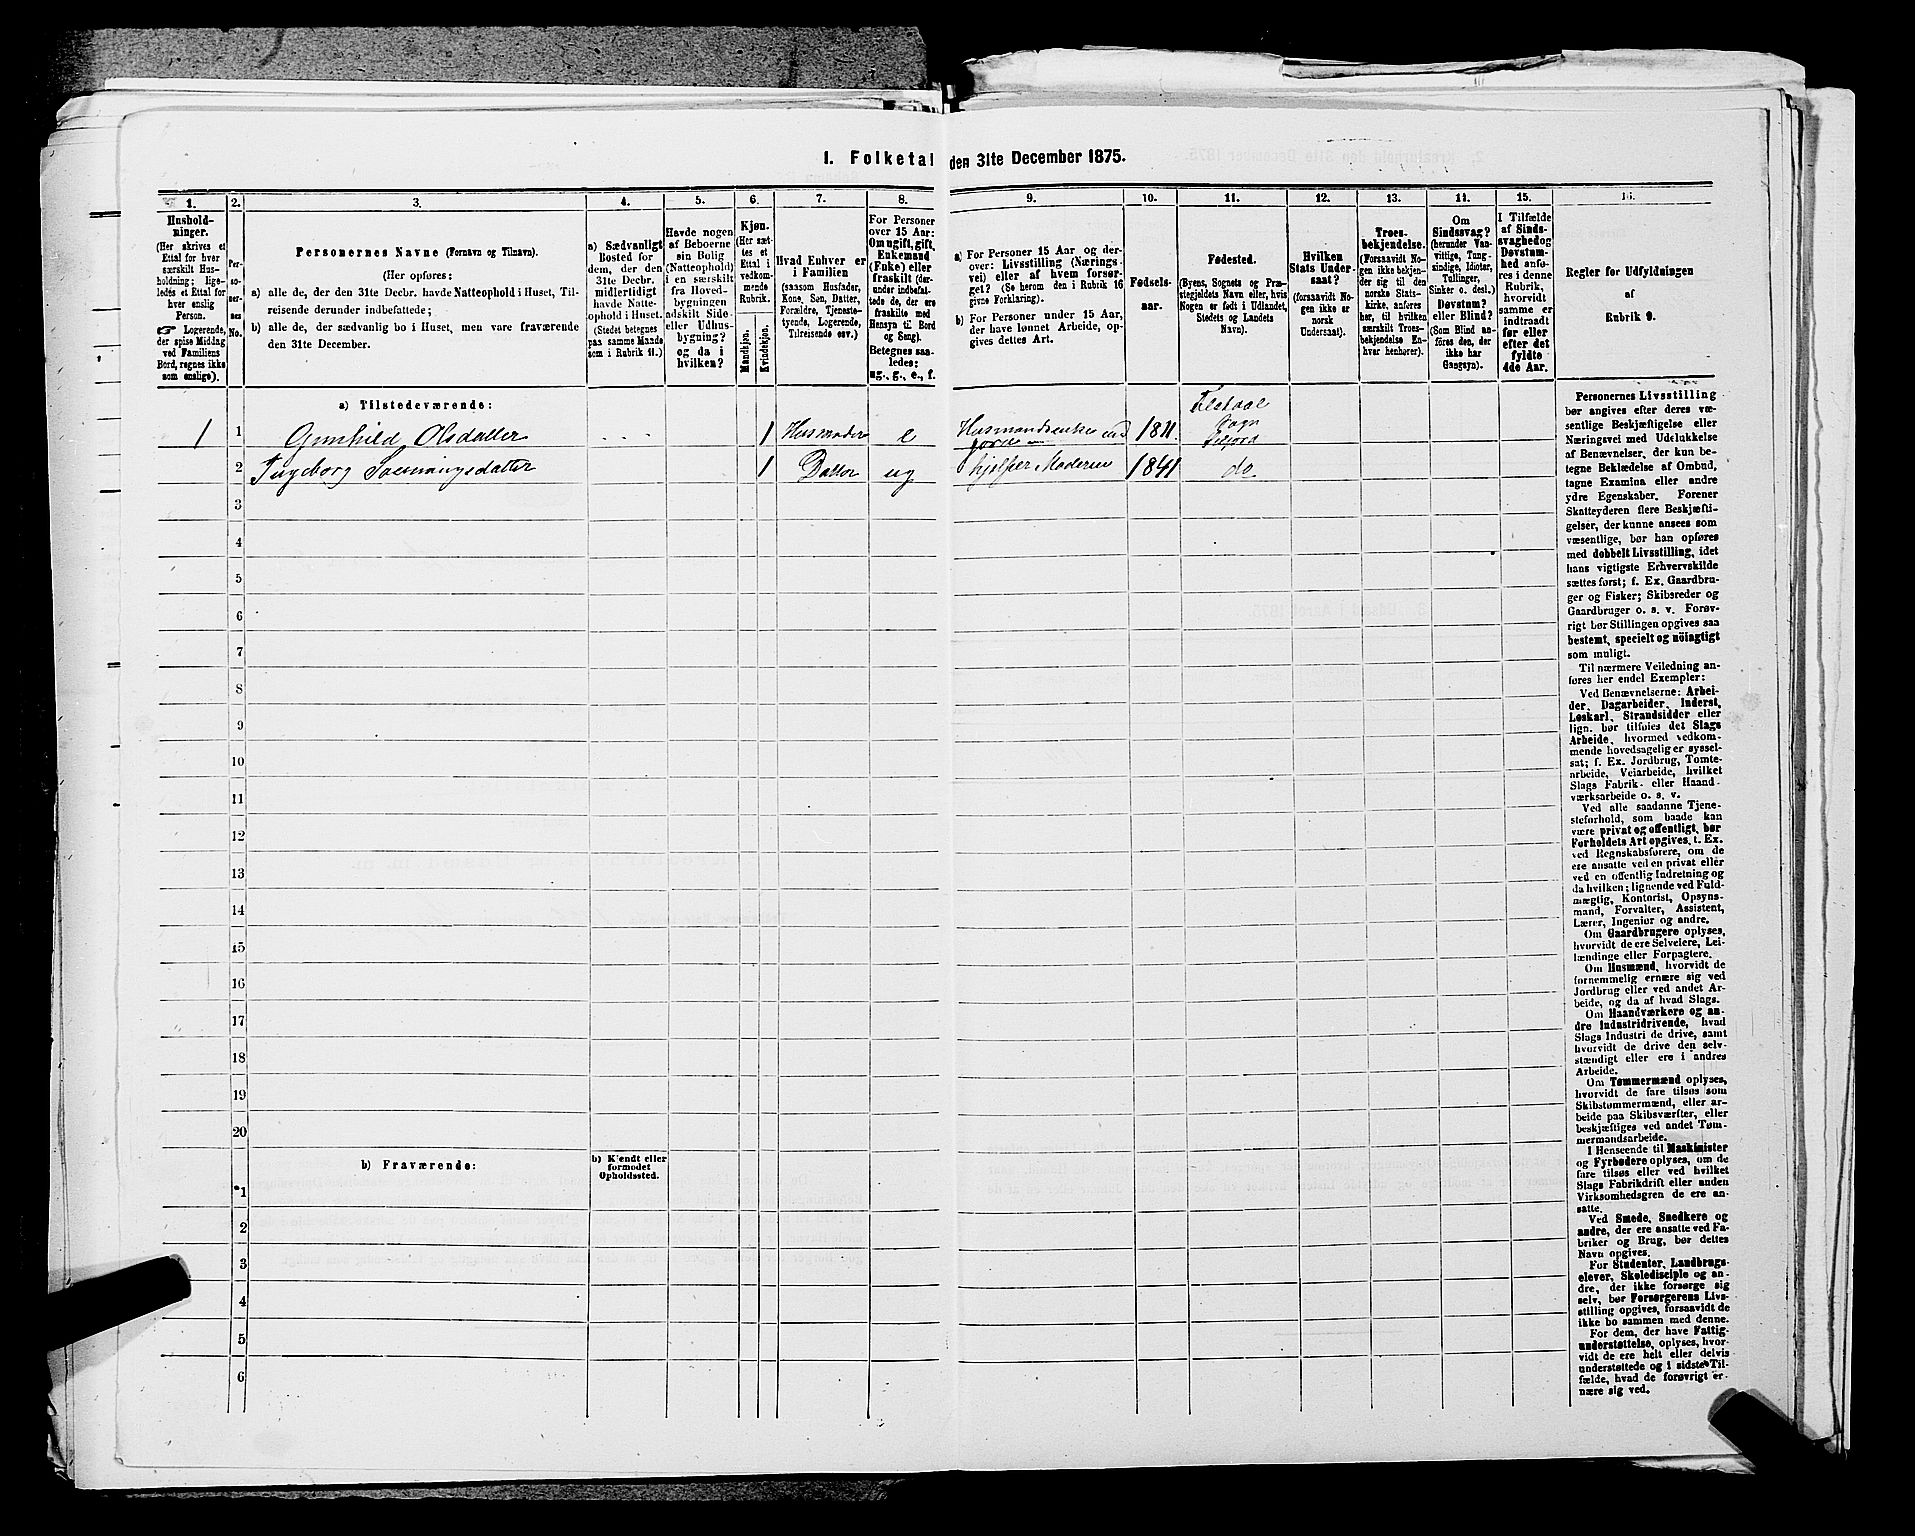 1. Folketal den 31te December 1875.
1.
2.
3.
4.
5.
6.
7.
8.
9.
10.
11.
12.
13.
14.
15.
16.
Hushold-
ninger.
(Her skrives et
Ettal for hver
særskilt Hus-
holdning; lige-
ledes et Ettal for
hver enslig
Person.
Logerende,
der spise Middag
ved Familiens
Bord, regnes ikke
som enslige).
Per-
so-
ner-
nes
No.
Personernes Navne (Fornavn og Tilnavn).
(Her opføres:
a) alle de, der den 31te Decbr. havde Natteophold i Huset, Til-
reisende derunder indbefattede;
b) alle de, der sædvanlig bo i Huset, men vare fraværende
den 31te December.
a) Sædvanligt
Bosted for
dem, der den
31te Decbr.
midlertidigt
havde Natte-
ophold i Huset.
(Stedet betegnes
paa samme Maade
som i Rubrik 11.)
Havde nogen
af Beboerne
sin Bolig
(Natteophold)
i en særskilt
fra Hoved-
bygningen
adskilt Side-
eller Udhus-
bygning?
og da i
hvilken?
Kjøn.
(Her sæt-
tes et
Ettal i
vedkom-
mende
Rubrik.
Mandkjøn.
Kvindekjøn.
Hvad Enhver er
i Familien
(saasom Husfader,
Kone, Søn, Datter,
Forældre, Tjeneste-
tyende, Logerende,
Tilreisende osv.)
For Personer
over 15 Aar:
Om ugift, gift,
Enkemand
(Enke) eller
fraskilt (der-
under indbefat-
tede de, der ere
fraskilte med
Hensyn til Bord
og Seng).
Betegnes saa-
ledes:
ug., g., e., f.
a) For Personer 15 Aar og der-
over: Livsstilling (Nærings-
vei) eller af hvem forsør-
get? (Se herom den i Rubrik 16
givne Forklaring).
b) For Personer under 15 Aar,
der have lønnet Arbeide, op-
gives dettes Art.
Fødsels-
aar.
Fødested.
(Byens, Sognets og Præ-
stegjeldets Navn eller, hvis
Nogen er født i Udlandet,
Stedets og Landets
Navn).
Hvilken
Stats Under-
saat?
(forsaavidt No-
gen ikke er
norsk
Undersaat).
Troes-
bekjendelse.
(Forsaavidt No-
gen ikke bekjen-
der sig til den
norske Stats-
kirke, anføres
her, til hvilken
særskilt Troes-
bekjendelse En-
hver henhører).
Om
Sindssvag?
(herunder Van-
vittige, Tung-
sindige, Idioter,
Tullinger,
Sinker o. desl.)
Døvstum?
eller Blind?
(Som Blind an-
føres den, der
ikke har
Gangsyn).
I Tilfælde
af Sinds-
svaghed og
Døvstum-
hed anfø-
res i denne
Rubrik,
hvorvidt
samme er
indtraadt
før eller
efter det
fyldte
4de Aar.
Regler for Udfyldningen
af
Rubrik 9.
a) Tilstedeværende:
1 1 Gunhild Olsdatter 1 Husmoder e Husmandsenke med
Jord 1811 Flatdal
Sogn
2 Ingeborg Sveinungsdatter 1 Datter ug hjelper Moderen 1841 do
3
4
5
6
7
8
9
10
11
12
13
14
15
16
17
18
19
20
b) Fraværende:
b) Kjendt eller
formodet
Opholdssted.
1
2
3
4
5
6
Personernes Livsstilling
bør angives efter deres væ-
sentlige Beskjæftigelse eller
Næringsvei med Udelukkelse
af Benævnelser, der kun be-
tegne Beklædelse af Ombud,
tagne Examina eller andre
ydre Egenskaber. Forener
Skatteyderen flere Beskjæfti-
gelser, der kunne ansees som
væsentlige, bør han opføres
med dobbelt Livsstilling, idet
hans vigtigste Erhvervskilde
sættes først; f. Ex. Gaardbru-
ger og Fisker; Skibsreder og
Gaardbruger o. s. v. Forøv-
rigt bør Stillingen opgives saa
bestemt, specielt og nöiagtigt
som muligt.
Til nærmere Veiledning an-
føres her endel Exempler:
Ved Benævnelserne: Arbei-
der, Dagarbeider, Inderst,
Løskarl, Strandsidder eller
lign. bør tilføies det Slags
Arbeide, hvormed vedkom-
mende hovedsagelig er syssel-
sat; f. Ex. Jordbrug, Tomte-
arbeide, Veiarbeide, hvilket
Slags Fabrik- eller Haand-
værksarbeide o. s. v.
Ved alle saadanne Tjene-
steforhold, som baade kan
være privat og offentligt, bør
Forholdets Art opgives, f. Ex.
ved Regnskabsførere, om de
ere ansatte ved en privat eller
ved en offentlig Indretning og
da hvilken; lignende ved Fuld-
mægtig, Kontorist, Opsyns-
mand, Forvalter, Assistent,
Lærer, Ingeniør og andre.
Om Gaardbrugere oplyses,
hvorvidt de ere Selveiere, Lei-
lændinge eller Forpagtere.
Om Husmænd, hvorvidt de
fornemmelig ernære sig ved
Jordbrug eller ved andet Ar-
beide, og da af hvad Slags.
Om Haandværkere og an-
dre Industridrivende, hvad
Slags Industri de drive, samt
hvorvidt de drive den selv-
stændigt eller ere i andres
Arbeide.
Om Tømmermænd oplyses,
hvorvidt de fare tilsøs som
Skibstømmermænd, eller ar-
beide paa Skibsværfter, eller
beskjæftiges ved andet Tøm-
mermandsarbeide.
I Henseende til Maskinister
og Fyrbødere oplyses, om de
fare tilsøs eller ved hvilket
Slags Fabrikdrift eller anden
Virksomhedsgren de ere an-
satte.
Ved Smede, Snedkere og
andre, der ere ansatte ved Fa-
briker og Brug, bør dettes
Navn opgives.
For Studenter, Landbrugs-
elever, Skoledisciple og an-
dre, der ikke forsørge sig
selv, bør Forsørgerens Livs-
stilling opgives, forsaavidt de
ikke bo sammen med denne.
For dem, der have Fattig-
understøttelse, oplyses, hvor-
vidt de ere helt eller delvis
understøttede og i sidste Til-
fælde, hvad de forøvrigt er-
nære sig ved.